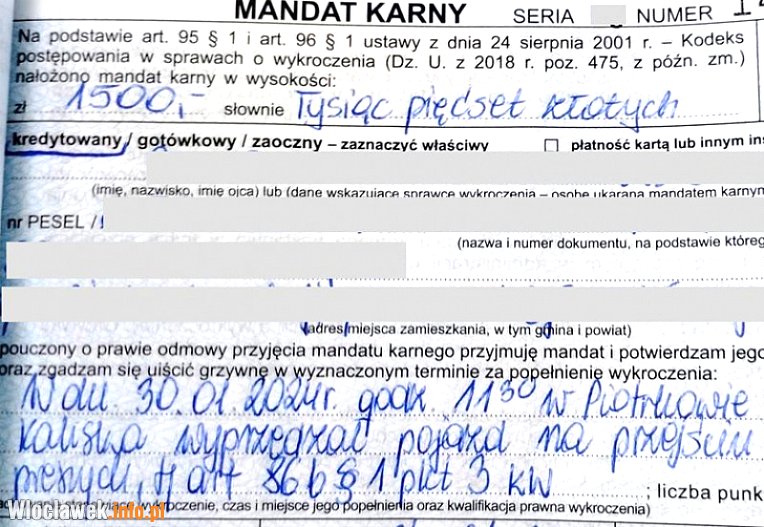 MANDAT KARNY SERIA NUMER
Na podstawie art. 95 § 1 i art. 96 § 1 ustawy z dnia 24 sierpnia 2001 r. – Kodeks
postępowania w sprawach o wykroczenia (Dz. U. z 2018 r. poz. 475, z późn. zm.)
nałożono mandat karny w wysokości:
zł 1500,- słownie Tysiąc piędset złotych
kredytowany / gotówkowy / zaoczny – zaznaczyć właściwy płatność kartą lub innym ins
(imię, nazwisko, imię ojca) lub (dane wskazujące sprawcę wykroczenia – osobę ukaraną mandatem karnym
nr PESEL /
(nazwa i numer dokumentu, na podstawie któreg
(adres miejsca zamieszkania, w tym gmina i powiat)
pouczony o prawie odmowy przyjęcia mandatu karnego przyjmuję mandat i potwierdzam jego
oraz zgadzam się uiścić grzywnę w wyznaczonym terminie za popełnienie wykroczenia:
W dn. 30.01.2024r. godz. 11 30 w Piotrkowie
kaliska wyprzedzał pojazd na przejściu
art 86b § 1 pkt 3 kw ; liczba punk
wykroczenie, czas i miejsce jego popełnienia oraz kwalifikacja prawna wykroczenia)
Wloclawek.info.pl